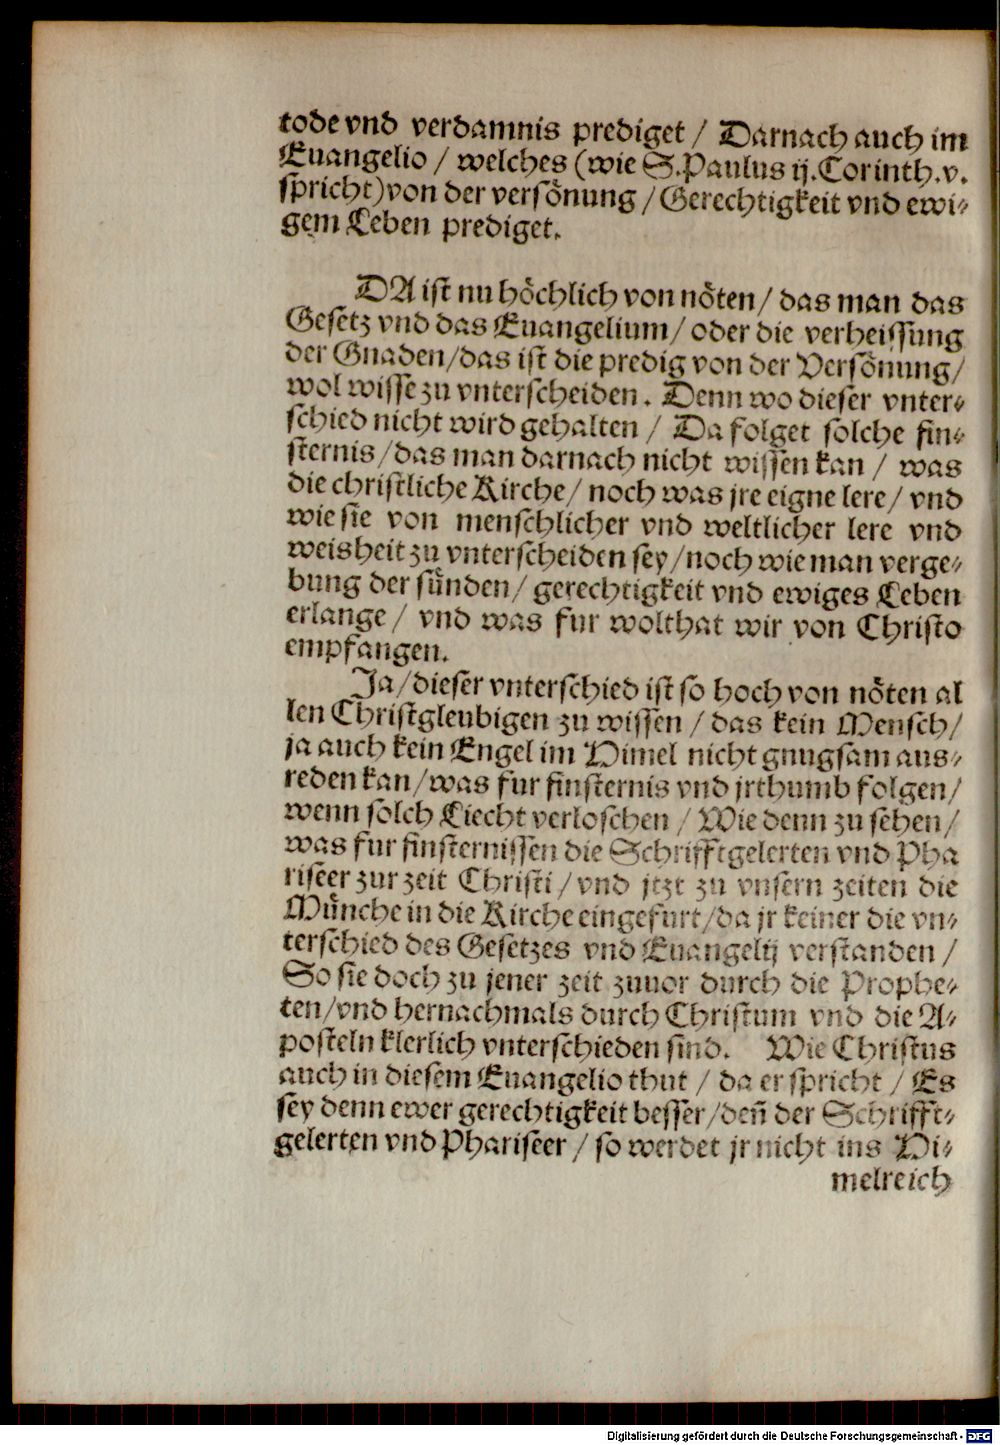 tode vnd verdamnis prediget / Darnach auch im
Euangelio / welches (wie S. Paulus ij. Corinth. v.
spricht) von der versönung / Gerechtigkeit vnd ewi-
gem Leben prediget.
DA ist nu höchlich von nöten / das man das
Gesetz vnd das Euangelium / oder die verheissung
der Gnaden / das ist die predig von der Versönung /
wol wisse zu vnterscheiden. Denn wo dieser vnter-
schied nicht wird gehalten / Da folget solche fin-
sternis / das man darnach nicht wissen kan / was
die christliche Kirche / noch was jre eigne lere / vnd
wie sie von menschlicher vnd weltlicher lere vnd
weisheit zu vnterscheiden sey / noch wie man verge-
bung der sünden / gerechtigkeit vnd ewiges Leben
erlange / vnd was fur wolthat wir von Christo
empfangen.
Ja / dieser vnterschied ist so hoch von nöten al
len Christgleubigen zu wissen / das kein Mensch /
ja auch kein Engel im Himel nicht gnugsam aus-
reden kan / was fur finsternis vnd jrthumb folgen /
wenn solch Liecht verloschen / Wie denn zu sehen /
was fur finsternissen die Schrifftgelerten vnd Pha
riseer zur zeit Christi / vnd jtzt zu vnsern zeiten die
Münche in die Kirche eingefurt / da jr keiner die vn-
terschied des Gesetzes vnd Euangelij verstanden /
So sie doch zu jener zeit zuuor durch die Prophe-
ten / vnd hernachmals durch Christum vnd die A-
posteln klerlich vnterschieden sind. Wie Christus
auch in diesem Euangelio thut / da er spricht / Es
sey denn ewer gerechtigkeit besser / deñ der Schrifft-
gelerten vnd Phariseer / so werdet jr nicht ins Hi-
melreich
Digitalisierung gefördert durch die Deutsche Forschungsgemeinschaft - DFG